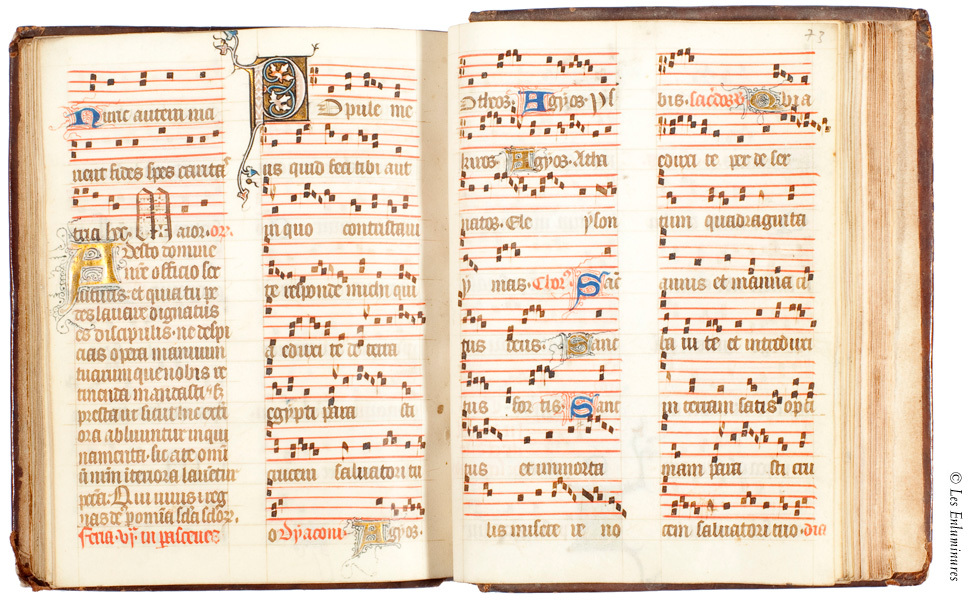 Nunc autem ma
nent fides spes caritas
tria hec. Maior. or.
Adesto domine
officio ser
uitutis. et quia tu pe
des lauare dignatus
es discipulis. ne despi
cias opera manuum
tuarum que nobis re
tinenda mandasti. &
presta ut sicut hic exti
ora abluuntur inqui
namenta. sic a te omniū
interiora lauentur
Qui uiuis reg
nas p omnia scla sclor.
feria vj. in parasceues
Popule me
us quid feci tibi aut
in quo contristaui
te responde michi qui
a eduxi te de terra
egypti para sti
crucem saluatori tu
o Dyaconi. Agyos.
O theos. Agyos.
kiros. Agyos. Atha
natos. Ele yson
y mas. Chor. Sanc
tus deus. Sanc
tus for tis. Sanc
tus et inmorta
lis misere re no
bis.
eduxi te per deser
tum quadraginta
annis et manna ci
ba ui te et introduxi
in terram satis opti
mam para sti cru
cem saluatori tuo. dia
73
© Les Enluminures